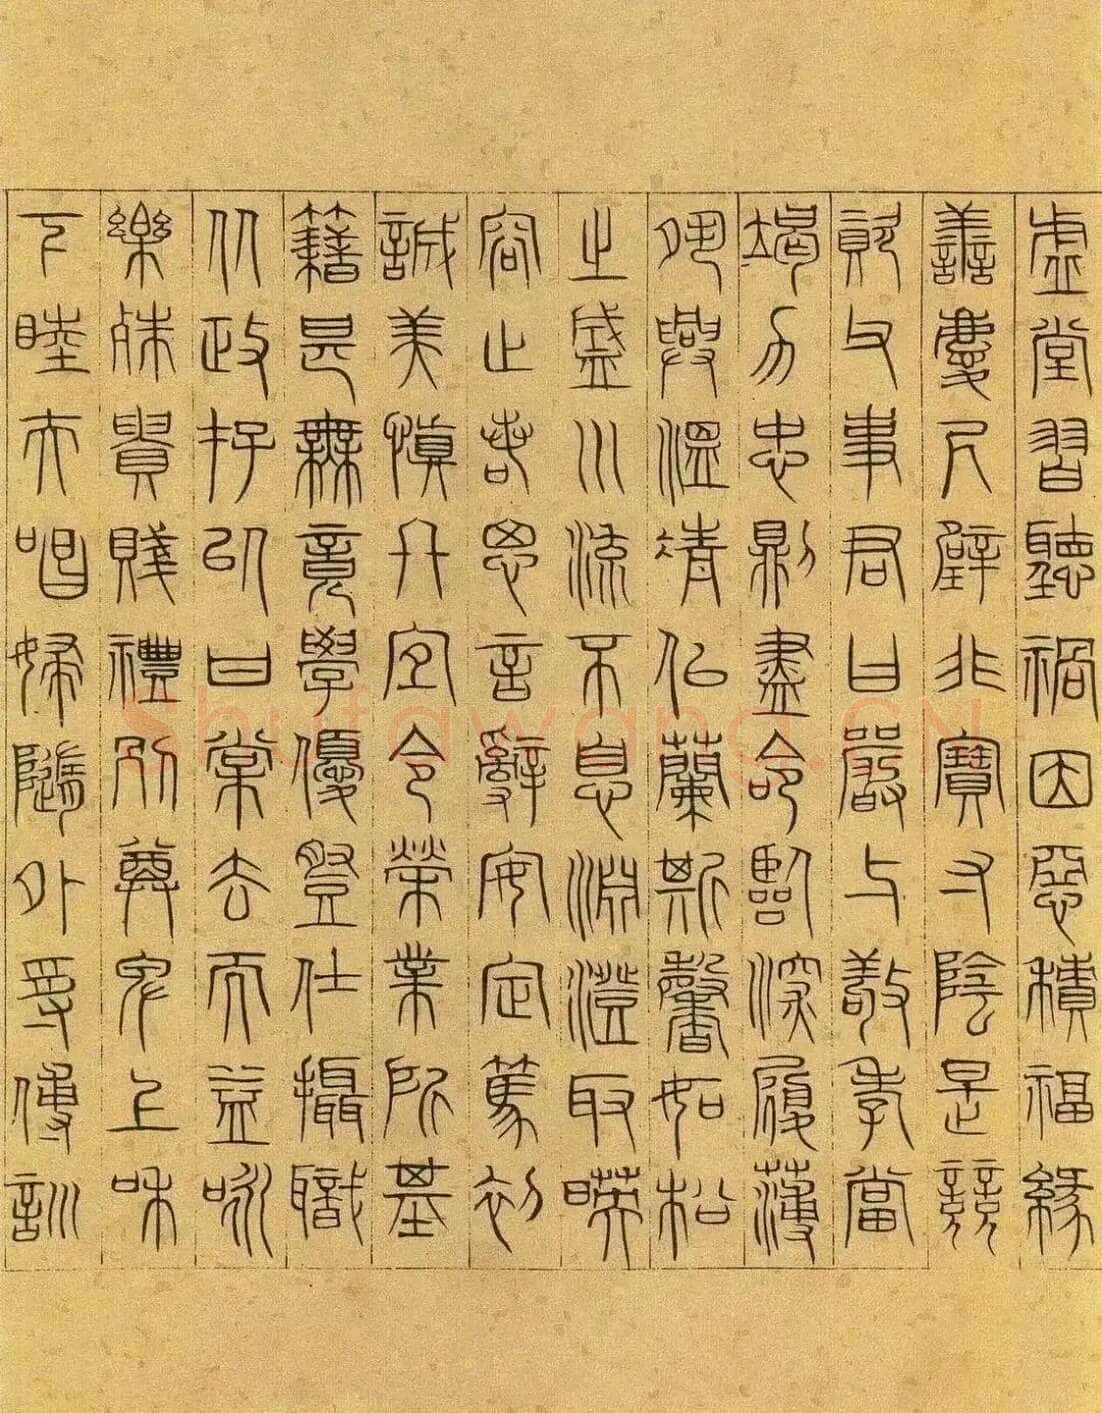 虛堂習聽禍因惡積福緣
善慶尺璧非寶寸陰是競
資父事君曰嚴与敬孝當
竭力忠則盡命臨深履薄
夙興溫凊似蘭斯馨如松
之盛川流不息淵澄取暎
容止若思言辭安定篤初
誠美慎終宜令榮業所基
籍甚無竟學優登仕攝職
从政存以甘棠去而益詠
樂殊貴賤禮別尊卑上和
下睦夫唱婦隨外受傅訓
Shufawang.CN